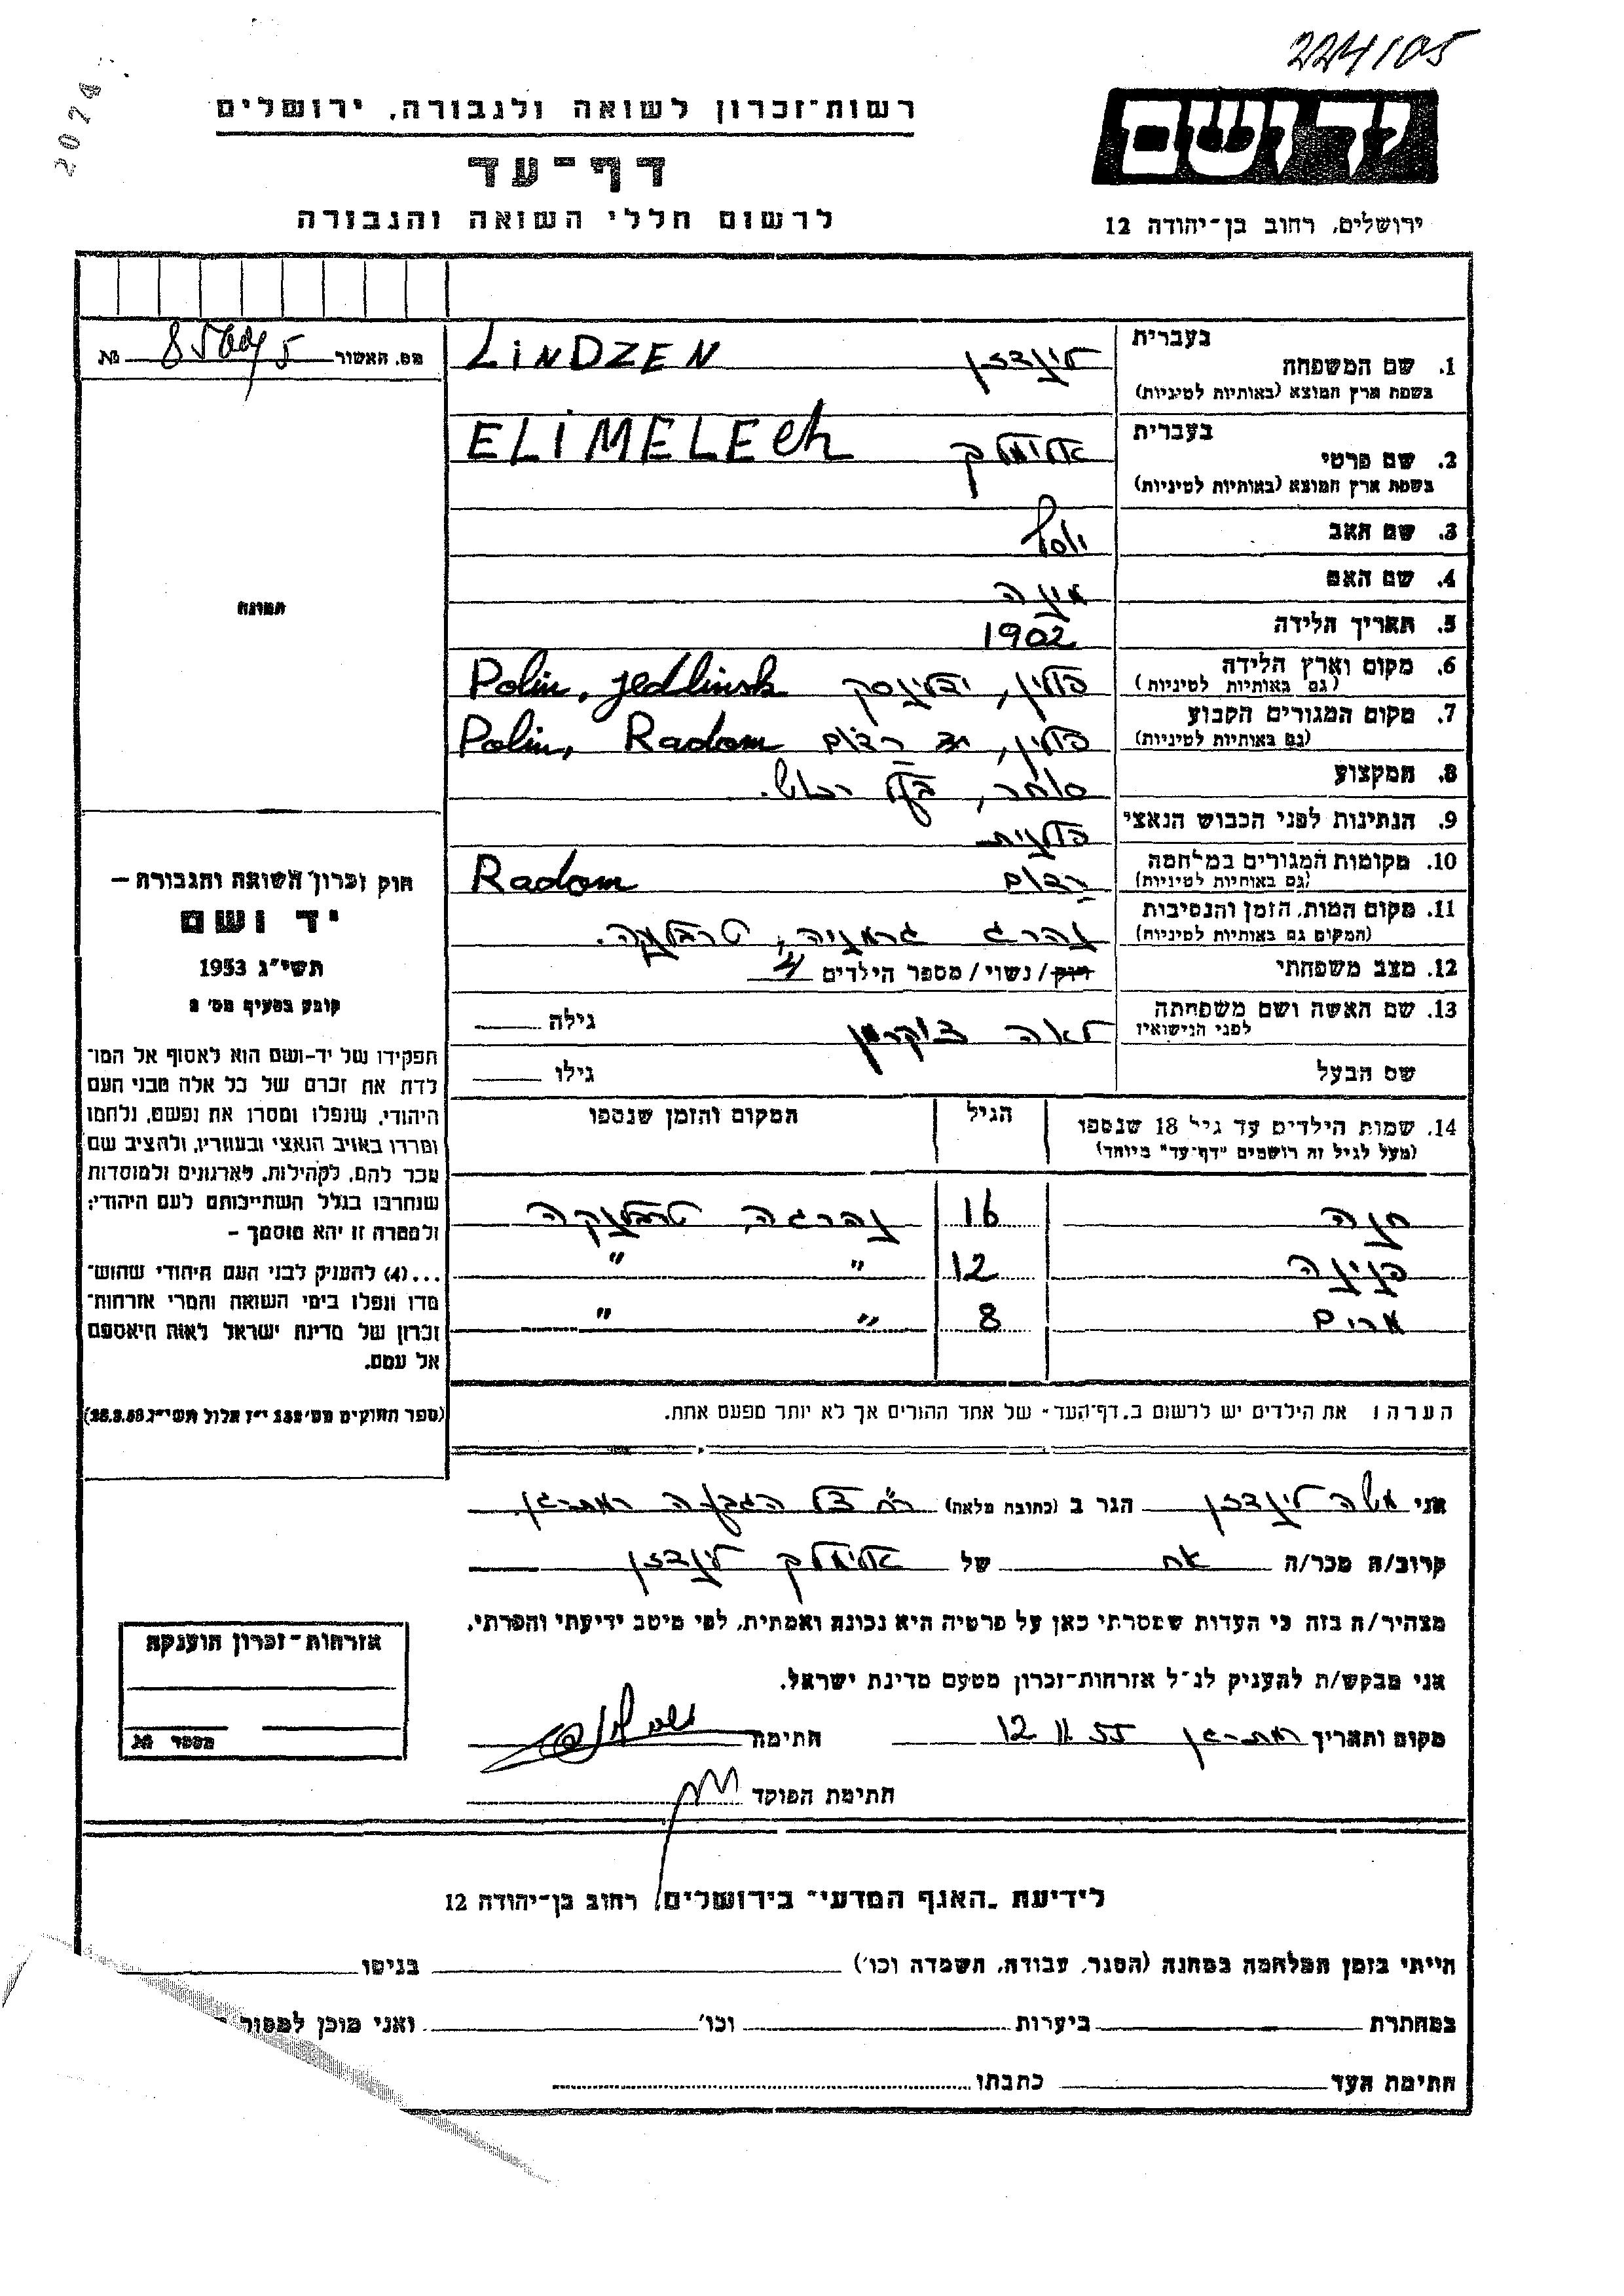 224/05
2074
רשות־זכרון לשואה ולגבורה, ירושלים
יד ושם
דף־עד
לרשום חללי השואה והגבורה
ירושלים, רחוב בן־יהודה 12
מס. האשור № 
1. שם המשפחה
בעברית לינדזן LINDZEN
בשפת ארץ המוצא (באותיות לטיניות)
2. שם פרטי
בעברית אלימלך ELIMELECH
בשפת ארץ המוצא (באותיות לטיניות)
3. שם האב יוסף
4. שם האם
5. תאריך הלידה 1902
6. מקום וארץ הלידה פולין, ידלינסק Polin, jedlinsk
(גם באותיות לטיניות)
7. מקום המגורים הקבוע פולין, רדום Polin, Radom
(גם באותיות לטיניות)
8. המקצוע סוחר, בעל רכוש.
9. הנתינות לפני הכבוש הנאצי פולנית
10. מקומות המגורים במלחמה רדום Radom
(גם באותיות לטיניות)
11. מקום המות, הזמן והנסיבות נהרג טרבלינקה.
(המקום גם באותיות לטיניות)
12. מצב משפחתי רווק/נשוי/מספר הילדים 4
13. שם האשה ושם משפחתה לאה צוקרמן גילה
לפני הנישואין
שם הבעל גילו
14. שמות הילדים עד גיל 18 שנספו הגיל המקום והזמן שנספו
(מעל לגיל זה רושמים "דף־עד" מיוחד)
חנה 16 נהרגה, טרבלינקה
פנינה 12 " "
8 " "
הערה: את הילדים יש לרשום ב"דף־העד" של אחד ההורים אך לא יותר מפעם אחת.
תמונה
חוק זכרון השואה והגבורה –
יד ושם
תשי"ג 1953
קובע בסעיף מס' 2
תפקידו של יד־ושם הוא לאסוף אל המו־
לדת את זכרם של כל אלה מבני העם
היהודי, שנפלו ומסרו את נפשם, נלחמו
ומרדו באויב הנאצי ובעוזריו, ולהציב שם
וזכר להם, לקהילות, לארגונים ולמוסדות
שנחרבו בגלל השתייכותם לעם היהודי;
ולמטרה זו יהא מוסמך –
...(4) להעניק לבני העם היהודי שהוש־
מדו ונפלו בימי השואה והמרי אזרחות־
זכרון של מדינת ישראל לאות היאספם
אל עמם.
(ספר החוקים מס' 132 י"ז אלול תשי"ג 28.8.53)
אני משה לינדזן הגר ב (כתובת מלאה) רמת־גן
קרוב/ה מכר/ה אח של אלימלך לינדזן
מצהיר/ה בזה כי העדות שמסרתי כאן על פרטיה היא נכונה ואמתית, לפי מיטב ידיעתי והכרתי.
אני מבקש/ת להעניק לנ"ל אזרחות־זכרון מטעם מדינת ישראל.
מקום ותאריך רמת־גן 12 11 55 חתימה
חתימת הפוקד
אזרחות־זכרון הוענקה
מספר №
לידיעת "האגף המדעי" בירושלים, רחוב בן־יהודה 12
הייתי בזמן המלחמה במחנה (הסגר, עבודה, השמדה וכו') בגיטו
במחתרת ביערות וכו' ואני מוכן למסור
חתימת העד כתבתו